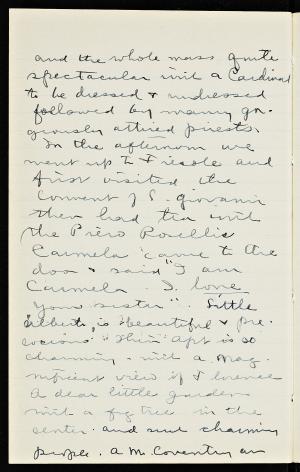 and the whole mass quite
spectacular with a Cardinal
to be dressed & undressed
followed by many gor-
geously attired priests.
In the afternoon we
went up to Fiesole and
first visited the
Convent of S. Giovanni
then had tea with
the Piero Rosellis
Carmela came to the
door & said "I am
Carmela. I love
your sister". Little
Alberto is beautiful & pre-
cocious. Their apt is so
charming - with a mag-
nificent view of Florence
A dear little garden
with a fig tree in the
center and such charming
people. A M. Coventry an